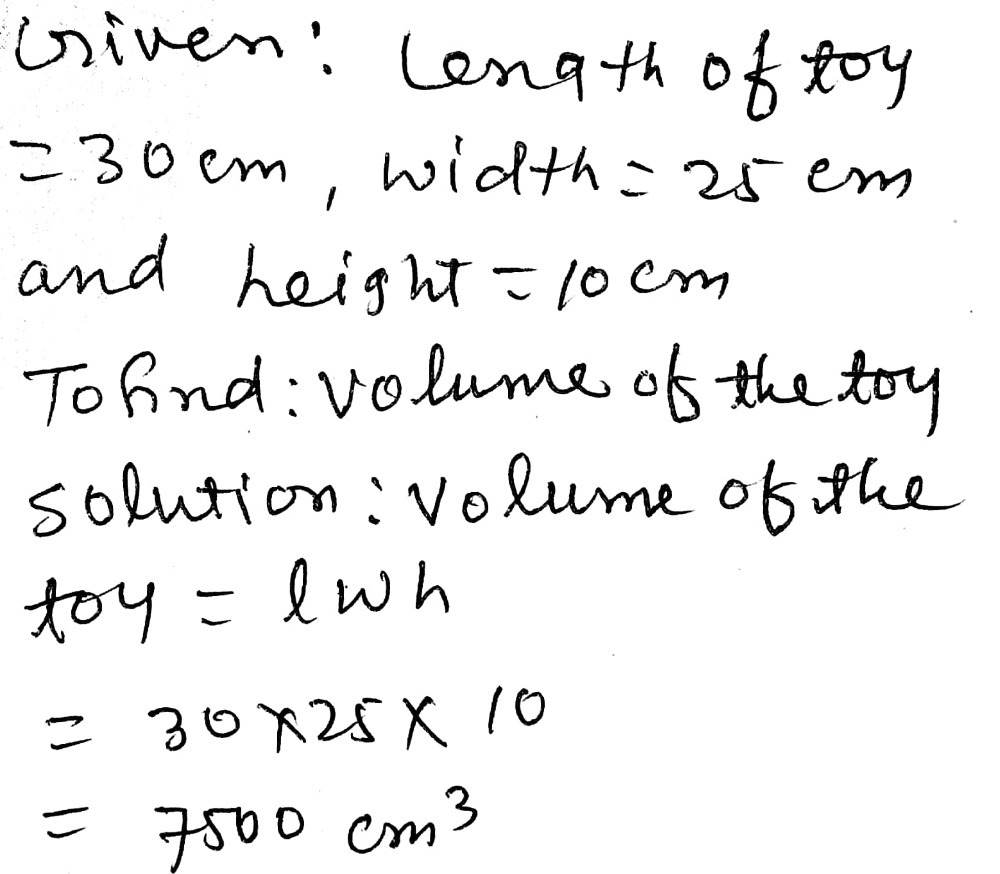 Given: Length of toy
= 30 cm, width = 25 cm
and height = 10 cm
To find: volume of the toy
solution: volume of the
toy = lwh
= 30 × 25 × 10
= 7500 cm³